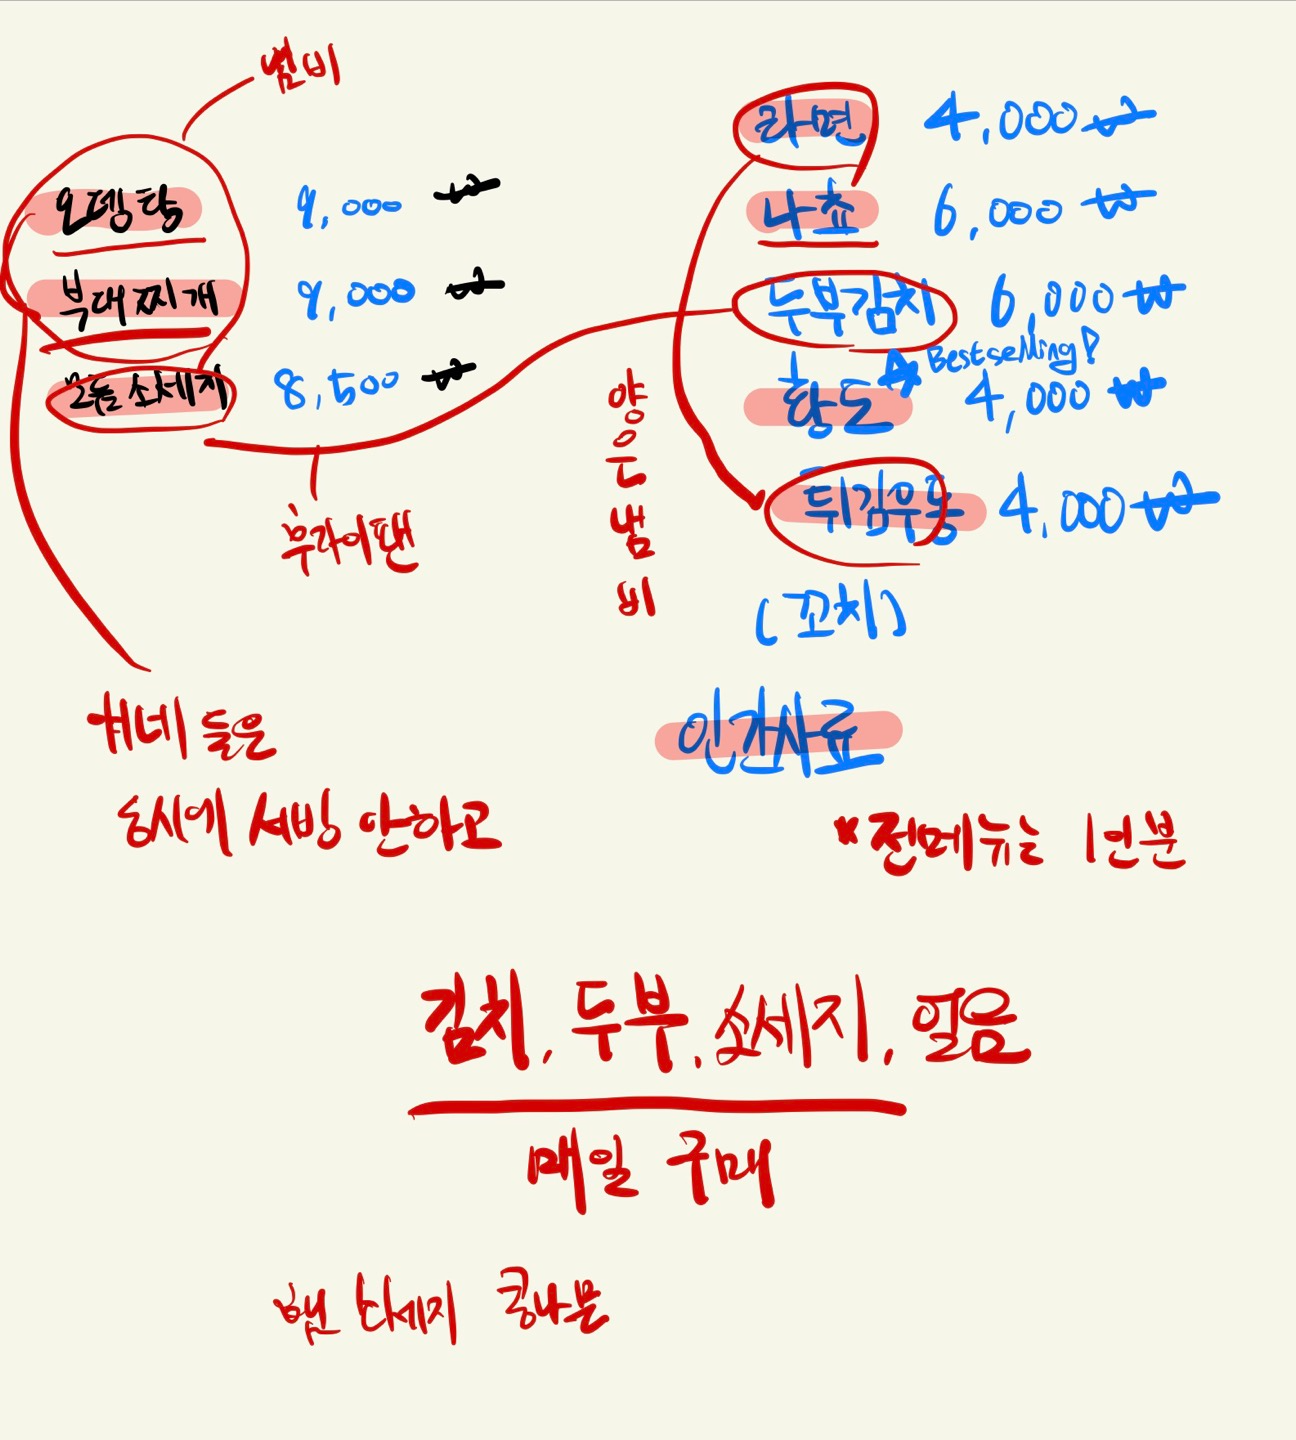 냄비
오뎅탕 9,000 ₩
부대찌개 9,000 ₩
모듬소세지 8,500 ₩
후라이팬
라면 4,000 ₩
나쵸 6,000 ₩
두부김치 6,000 ₩
Bestselling!
황도 4,000 ₩
튀김우동 4,000 ₩
(꼬치)
인간사료
양은냄비
얘네들은
동시에 서빙 안하고
*전메뉴는 1인분
김치, 두부, 소세지, 얼음
매일 구매
햄 소세지 콩나물